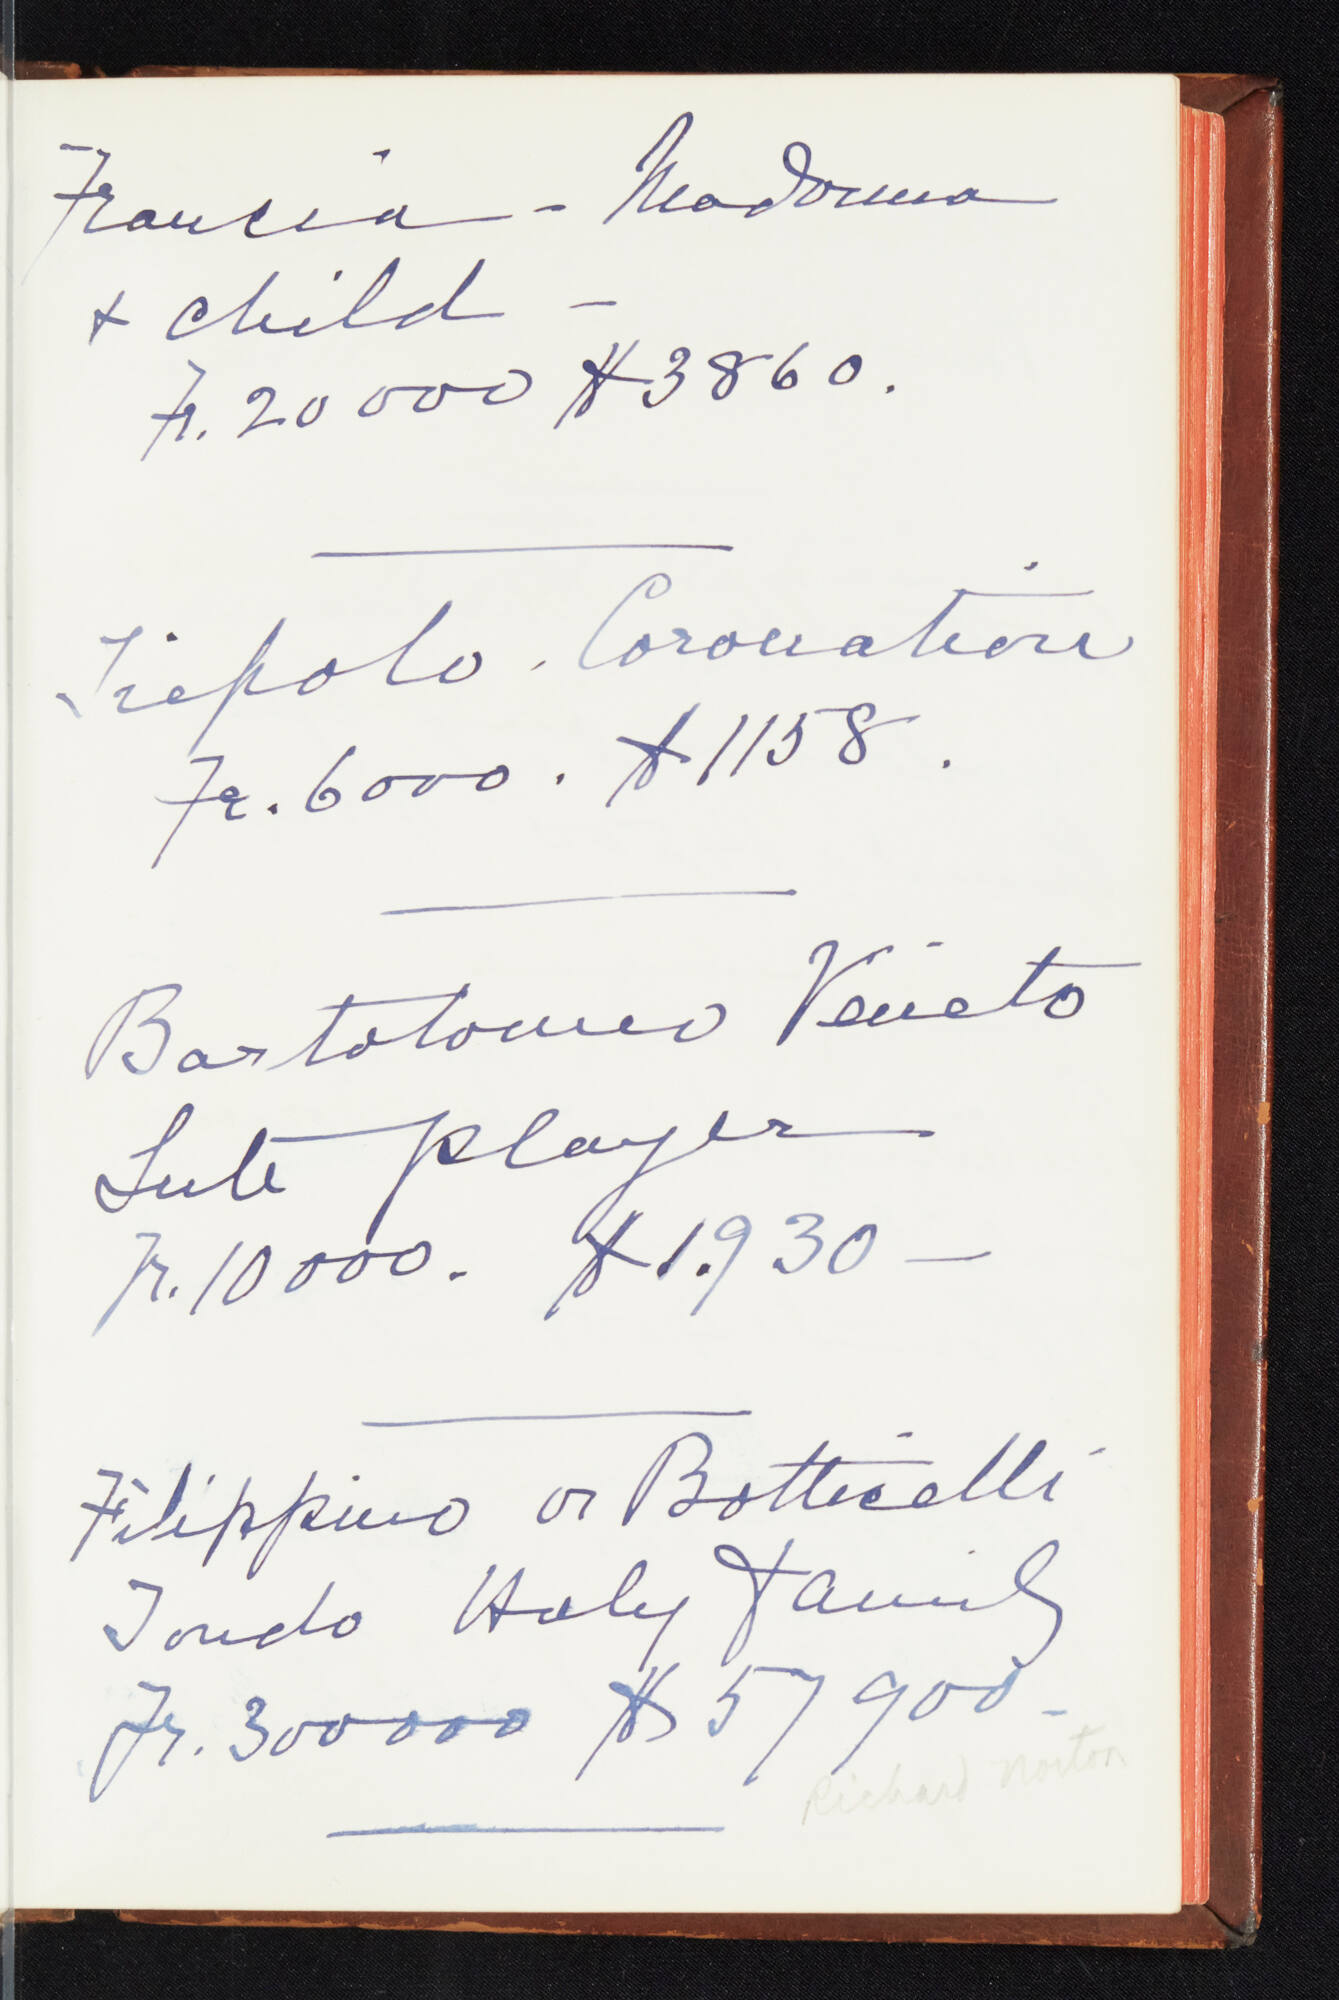 Francia - Madonna
& child -
Fr. 20000 $3860.
Tiepolo. Coronation
Fr. 6000. $1158.
Bartolomeo Veneto
Lute player
Fr. 10000. $1.930 -
Filippino or Botticelli
Tondo Holy Family
Fr. 300000 $57900 -
Richard Norton